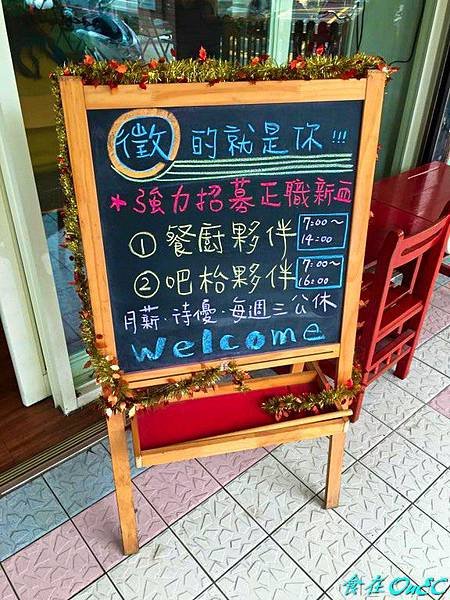 徵的就是你!!!
*強力招募正職新血
①餐廚夥伴 7:00～14:00
②吧枱夥伴 7:00～16:00
月薪·待優·每週三公休
Welcome
食在OnEC